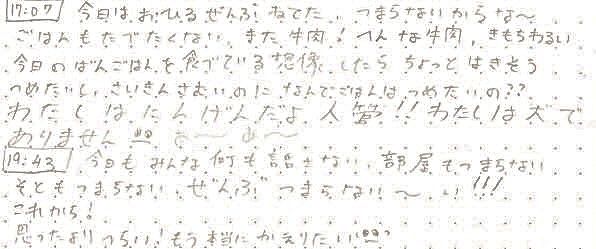 17:07 今日は おひるぜんぶ ねてた. つまらないからな〜
ごはんもたべたくない. また 牛肉! へんな牛肉. きもちわるい
今日のばんごはんを食べている想像したら ちょっとはきそう
つめたいし. さいきんさむいのに なんでごはんは つめたいの??
わたしはにんげんだよ 人間!! わたしは犬で
ありません
19:43 今日も みんな何も話さない. 部屋もつまらない
そともつまらない. ぜんぶ つまらない〜い!!!
これから!
思ったよりつらい! もう本当にかえりたい